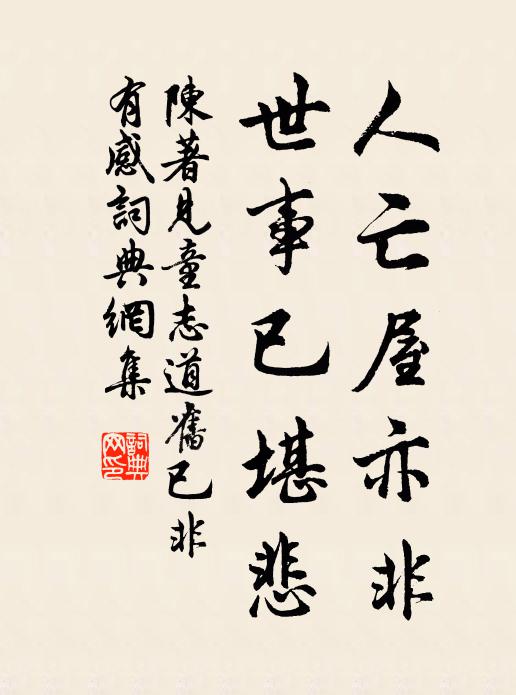 人亡屋亦非
世事已堪悲
陳著見童志道舊已非
有感詞典網集
詞典
网印